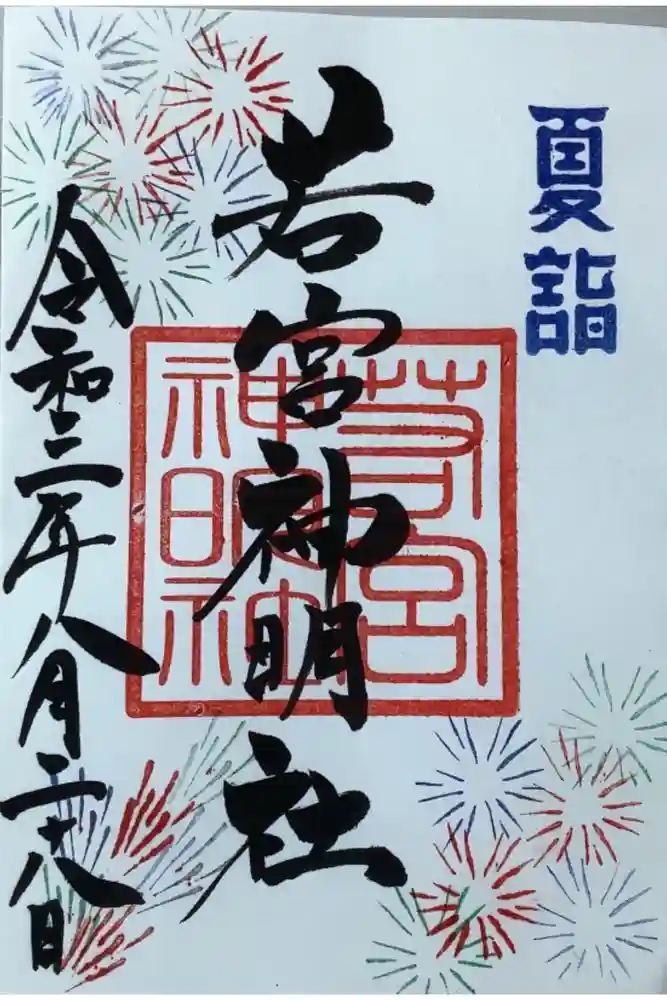 夏詣
若宮神明社
若宮神明社
令和三年八月二十八日